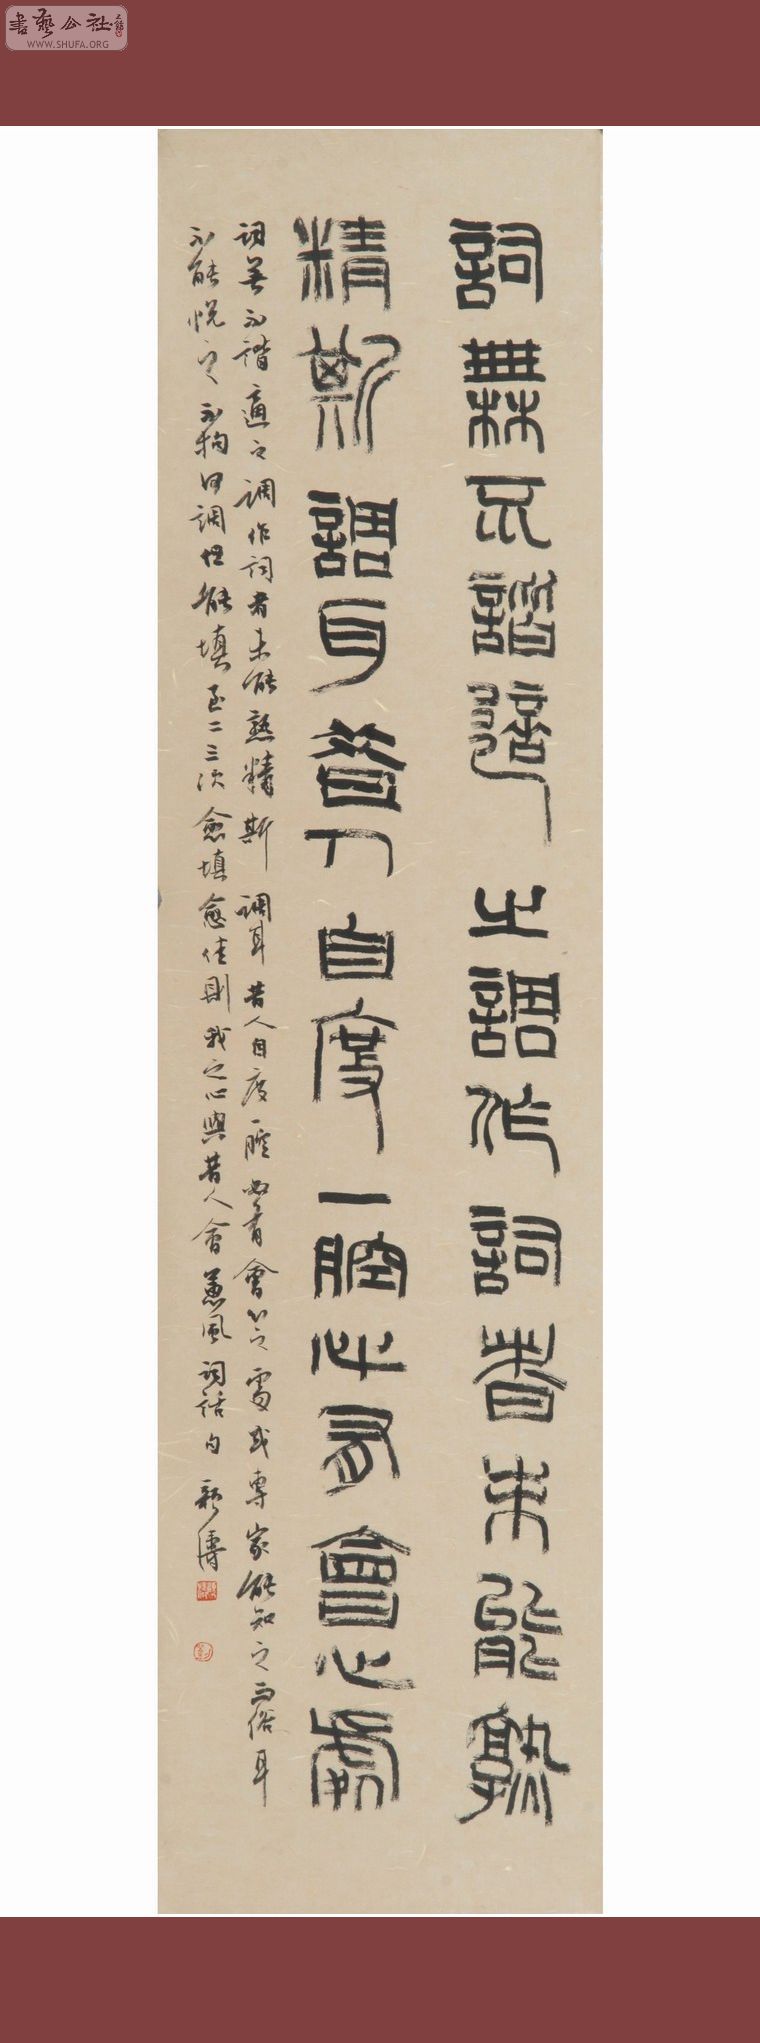 書藝公社
WWW.SHUFA.ORG
詞無不諧適之調作詞者未能熟
精斯調耳昔人自度一腔必有會心處
詞無不諧適之調作詞者未能熟精斯調耳昔人自度一腔必有會心之處或專家能知之而俗耳
不能悅之不拘何調但能填至二三次愈填愈佳則我之心與昔人會蕙風詞話句